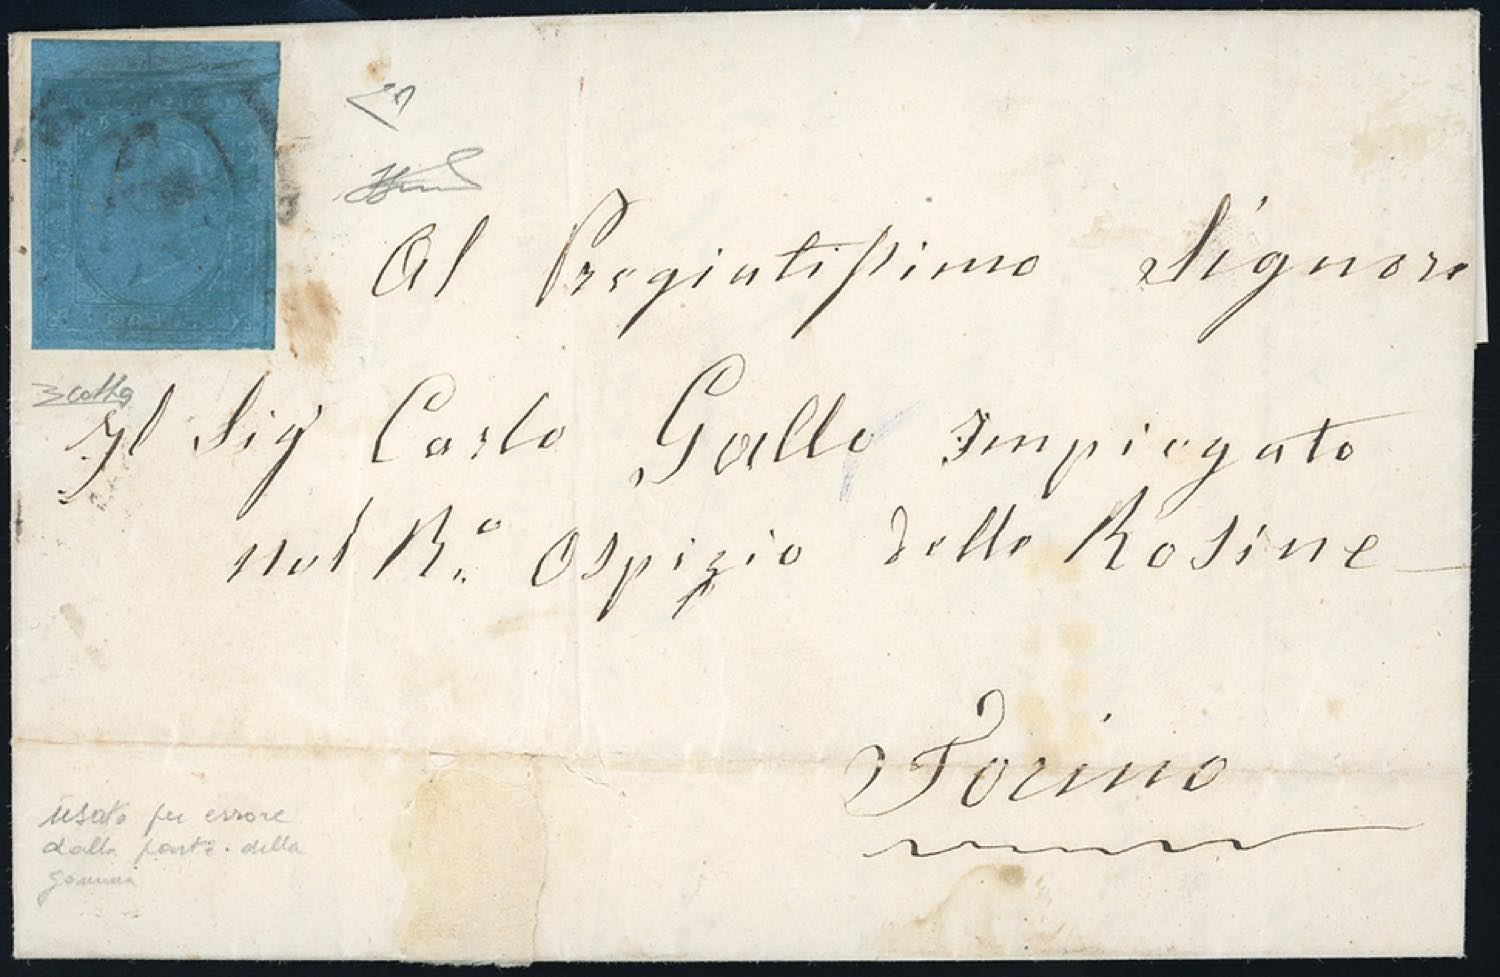 Al Pregiatissimo Signore
Il Sig Carlo Gallo Impiegato
nel R.º Ospizio delle Rosine
Torino
usato per errore
dalla parte della
gomma